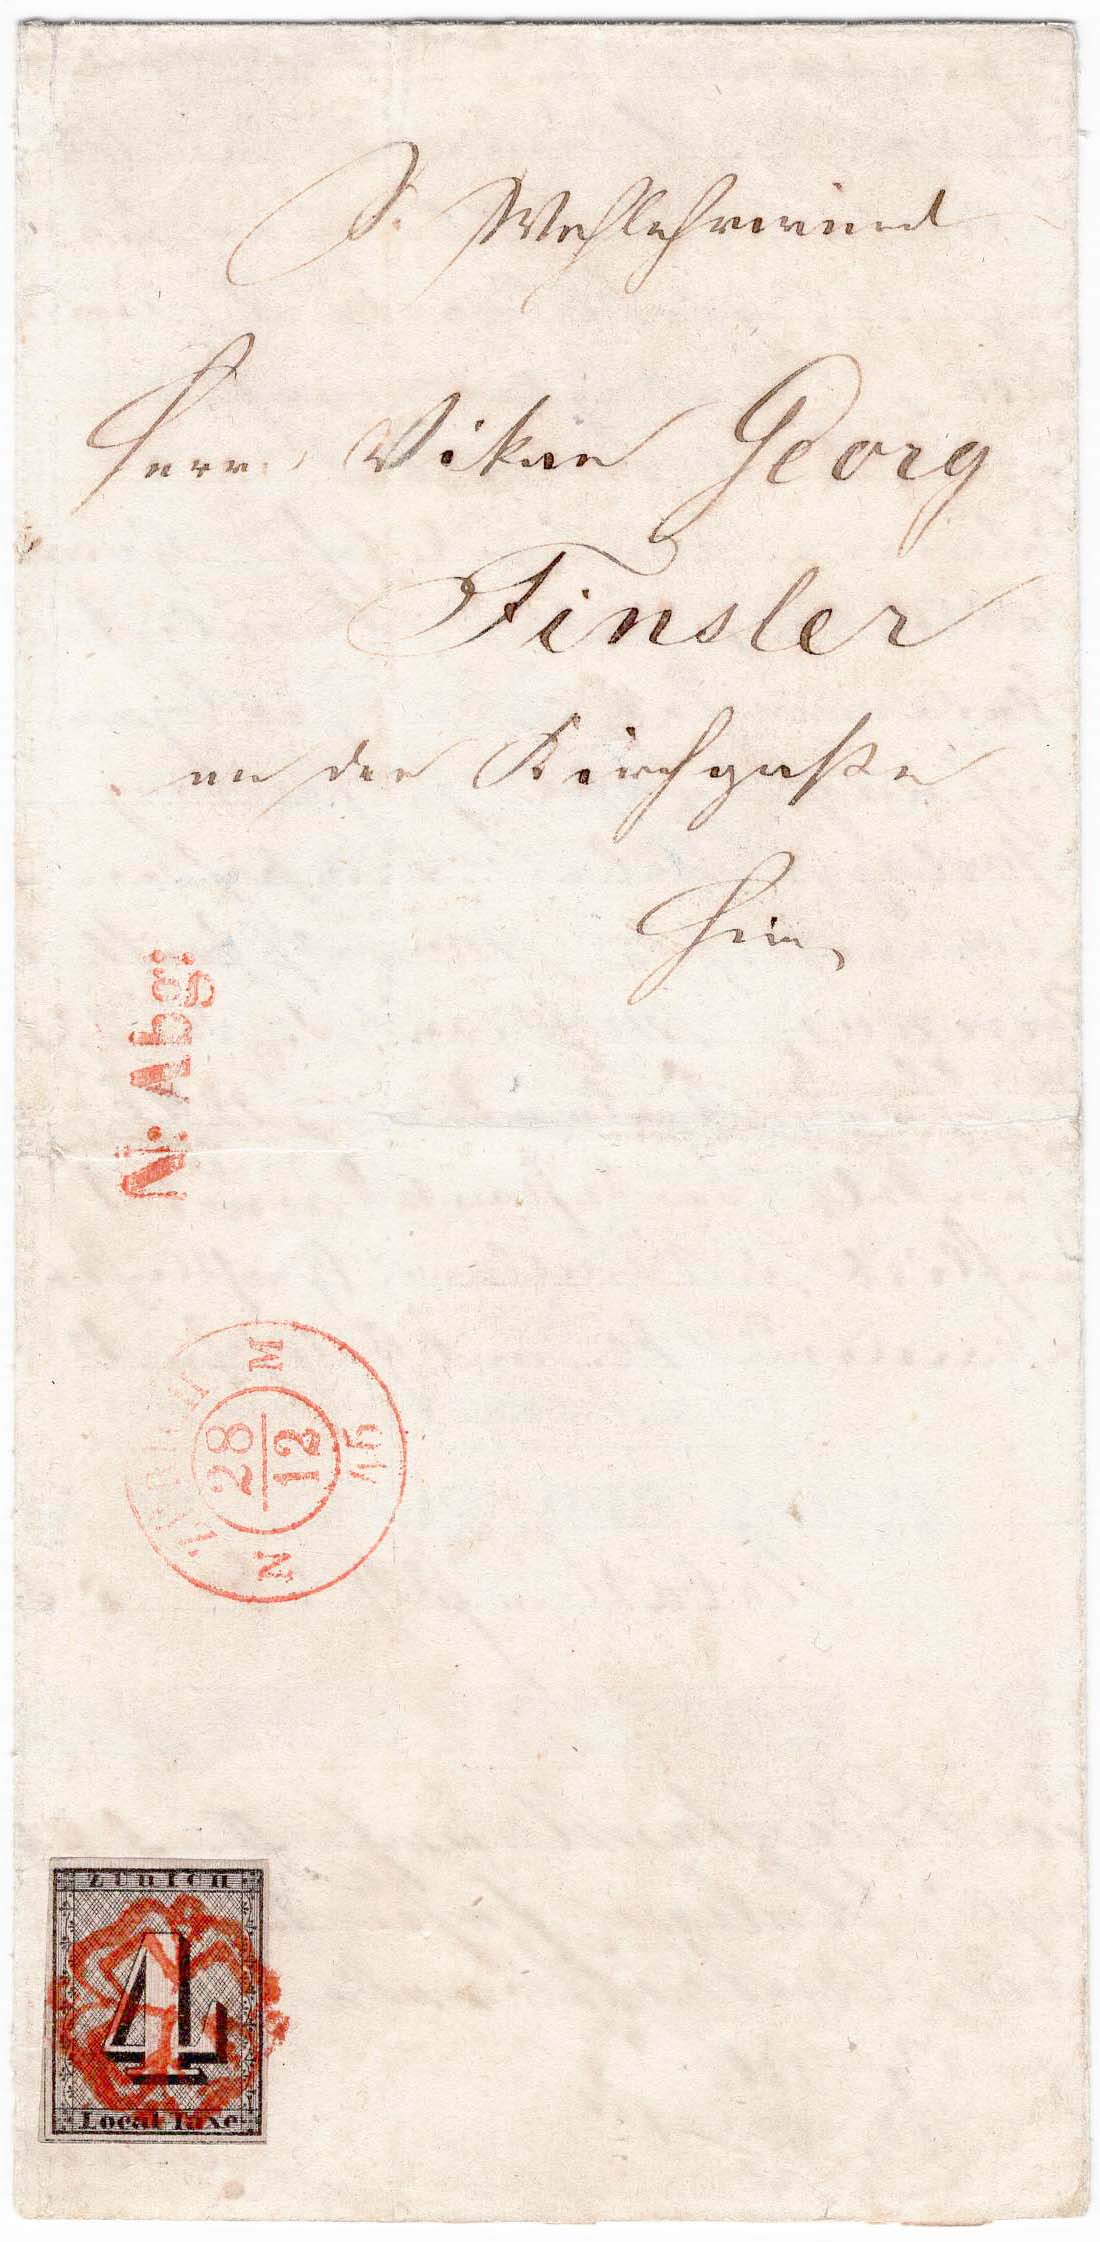 S. Wohlehrwürd
Herrn Vikar Georg
Finsler
an der Kirchgaße
Hier.
N: Abg:
ZÜRICH
M
28
12
45
N
ZÜRICH
4
Local Taxe